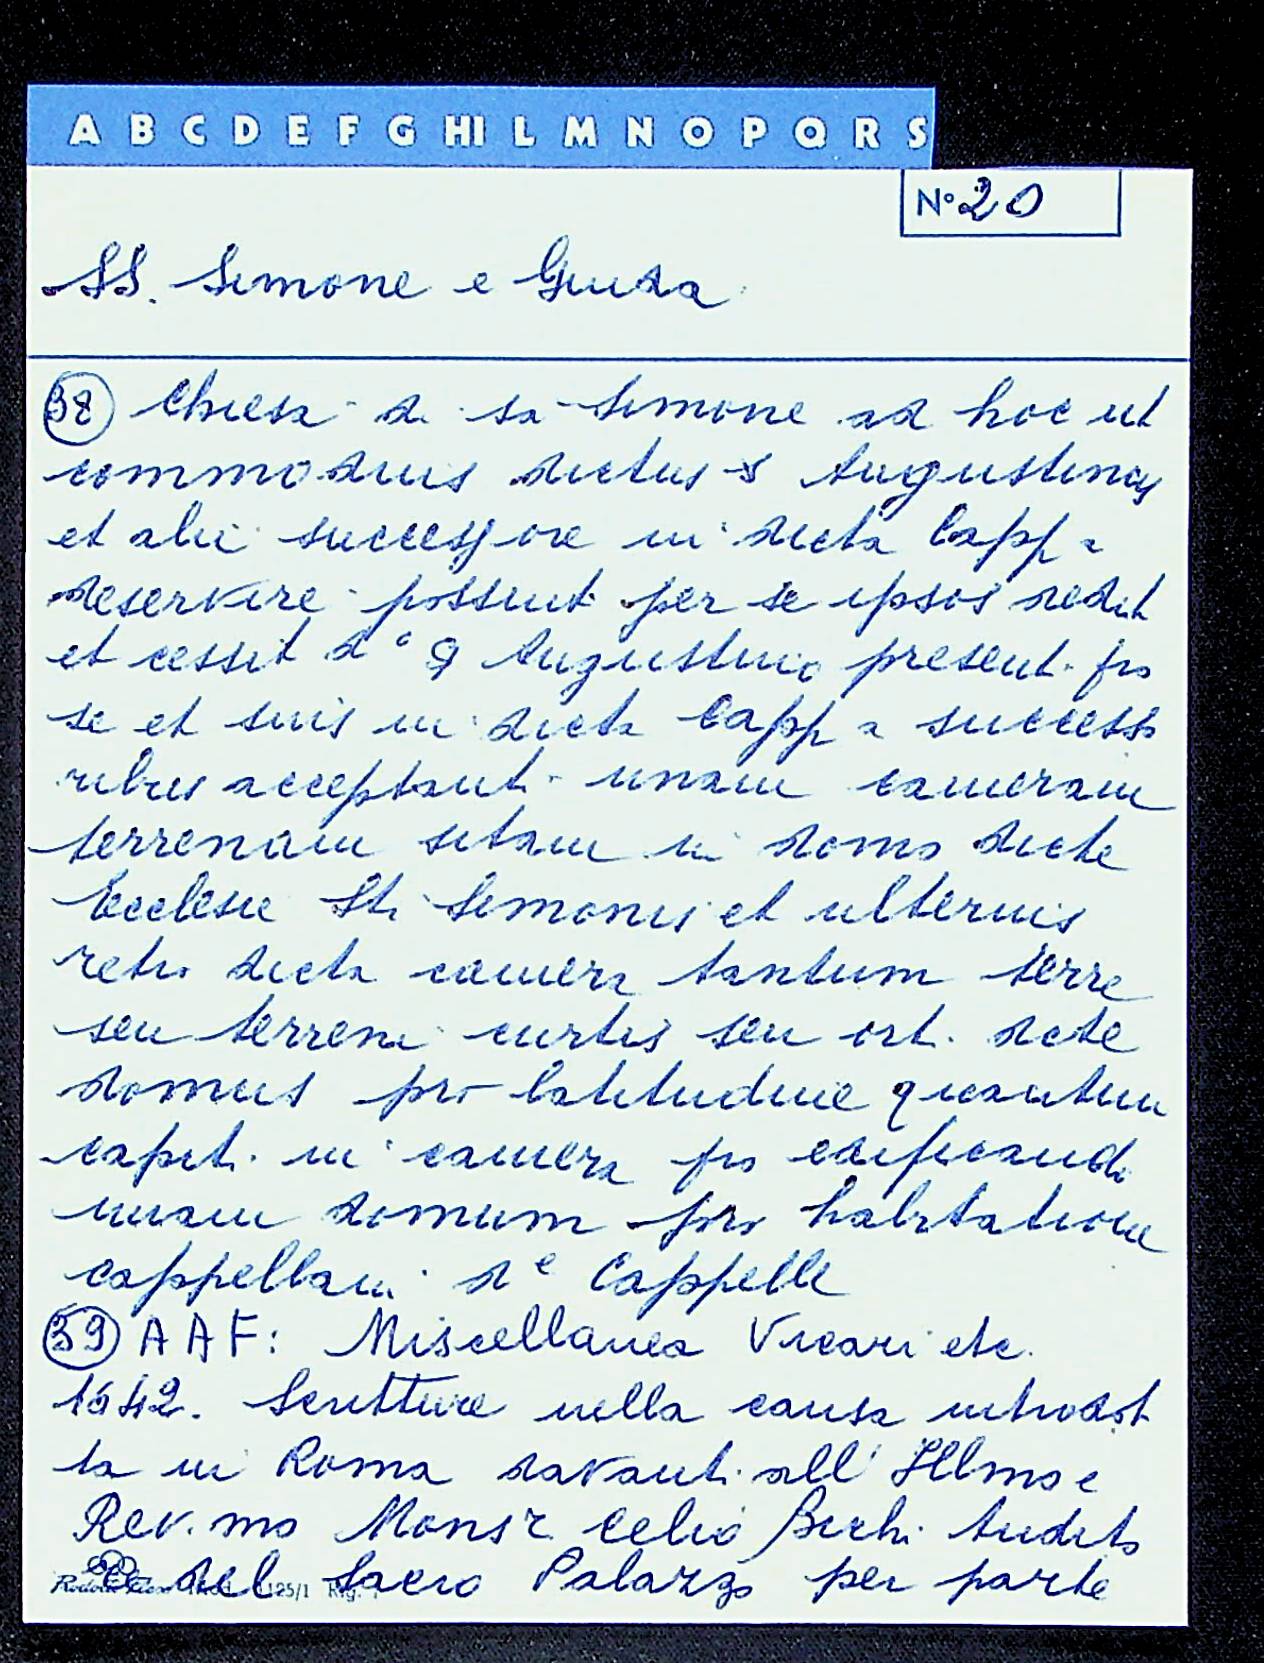 A B C D E F G HI L M N O P Q R S
N° 20
SS. Simone e Giuda
38 Chiesa di sa Simone ad hoc ut
commodius dictus s Augustinus
et alii successore in dicta Capp a
deservire possint per se ipsos dedit
et cessit d° Augustino present. pro
se et suis in dicta Capp a successo
ribus acceptant. unam cameram
terrenam sitam in domo dicte
Ecclesie Sti Simonis et ulterius
retro dicta camera tantum terre
seu terreni curtis seu ort. dcte
domus pro latitudine quantum
capit. in camera pro edificandi
unam domum pro habitatione
cappellani de Cappelle
39 AAF: Miscellanea Vicari etc.
1642. Scritture nella causa introdot
ta in Roma davanti all' Illmo e
Rev.mo Monsr Celio Bichi Audito
del Sacro Palazzo per parte